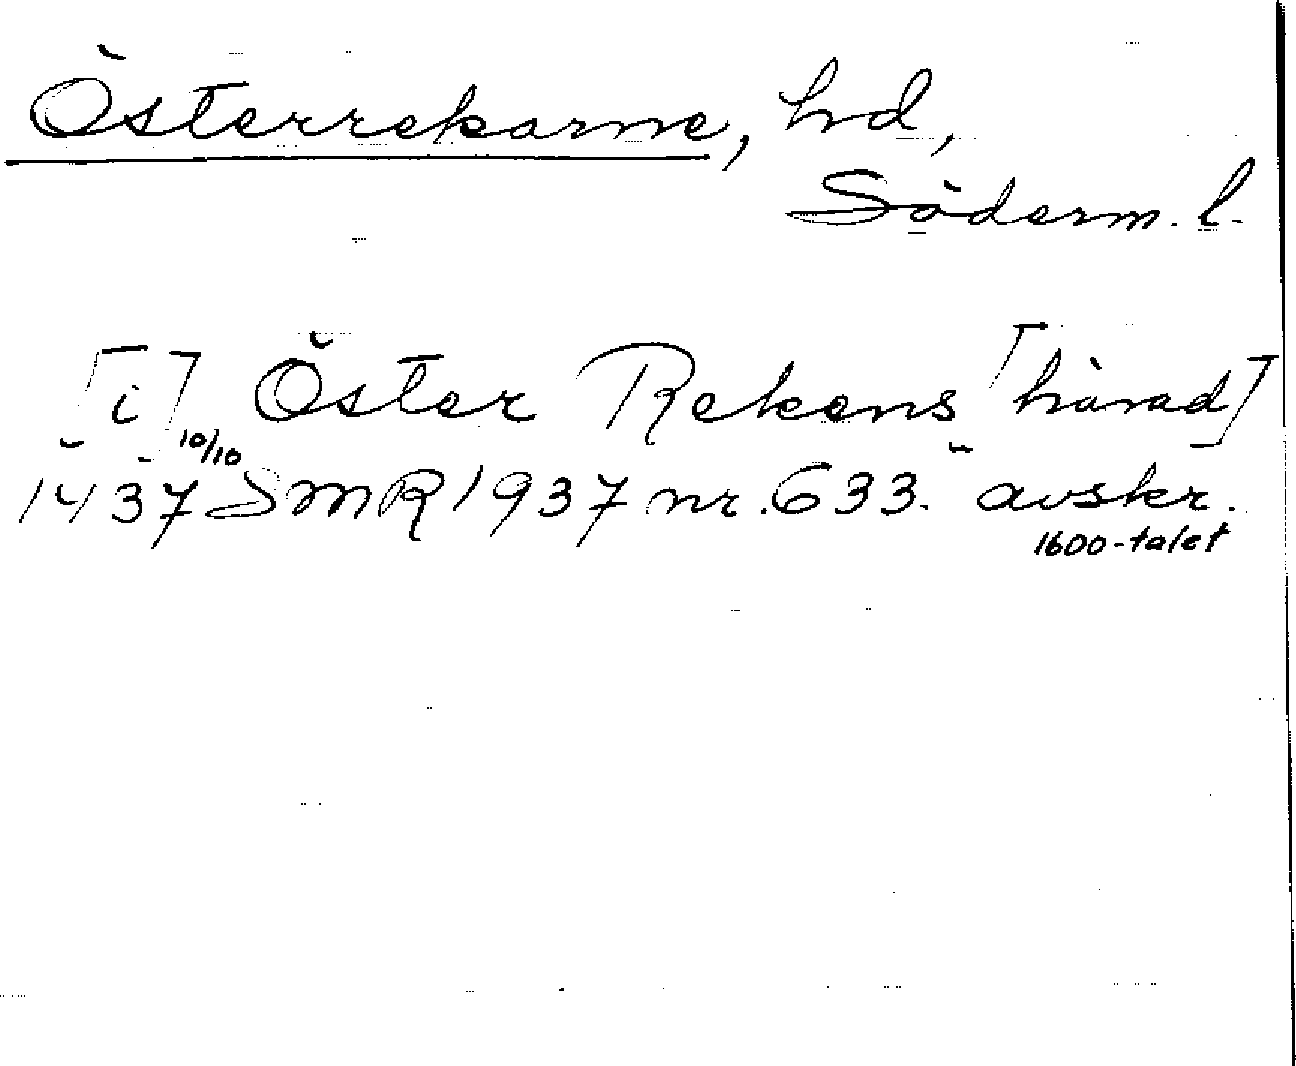 Österrekarne, hd,
Söderm. l.
[i] Öster Rekens [härad]
1437 10/10 SMR 1937 nr. 633. avskr.
1600-talet